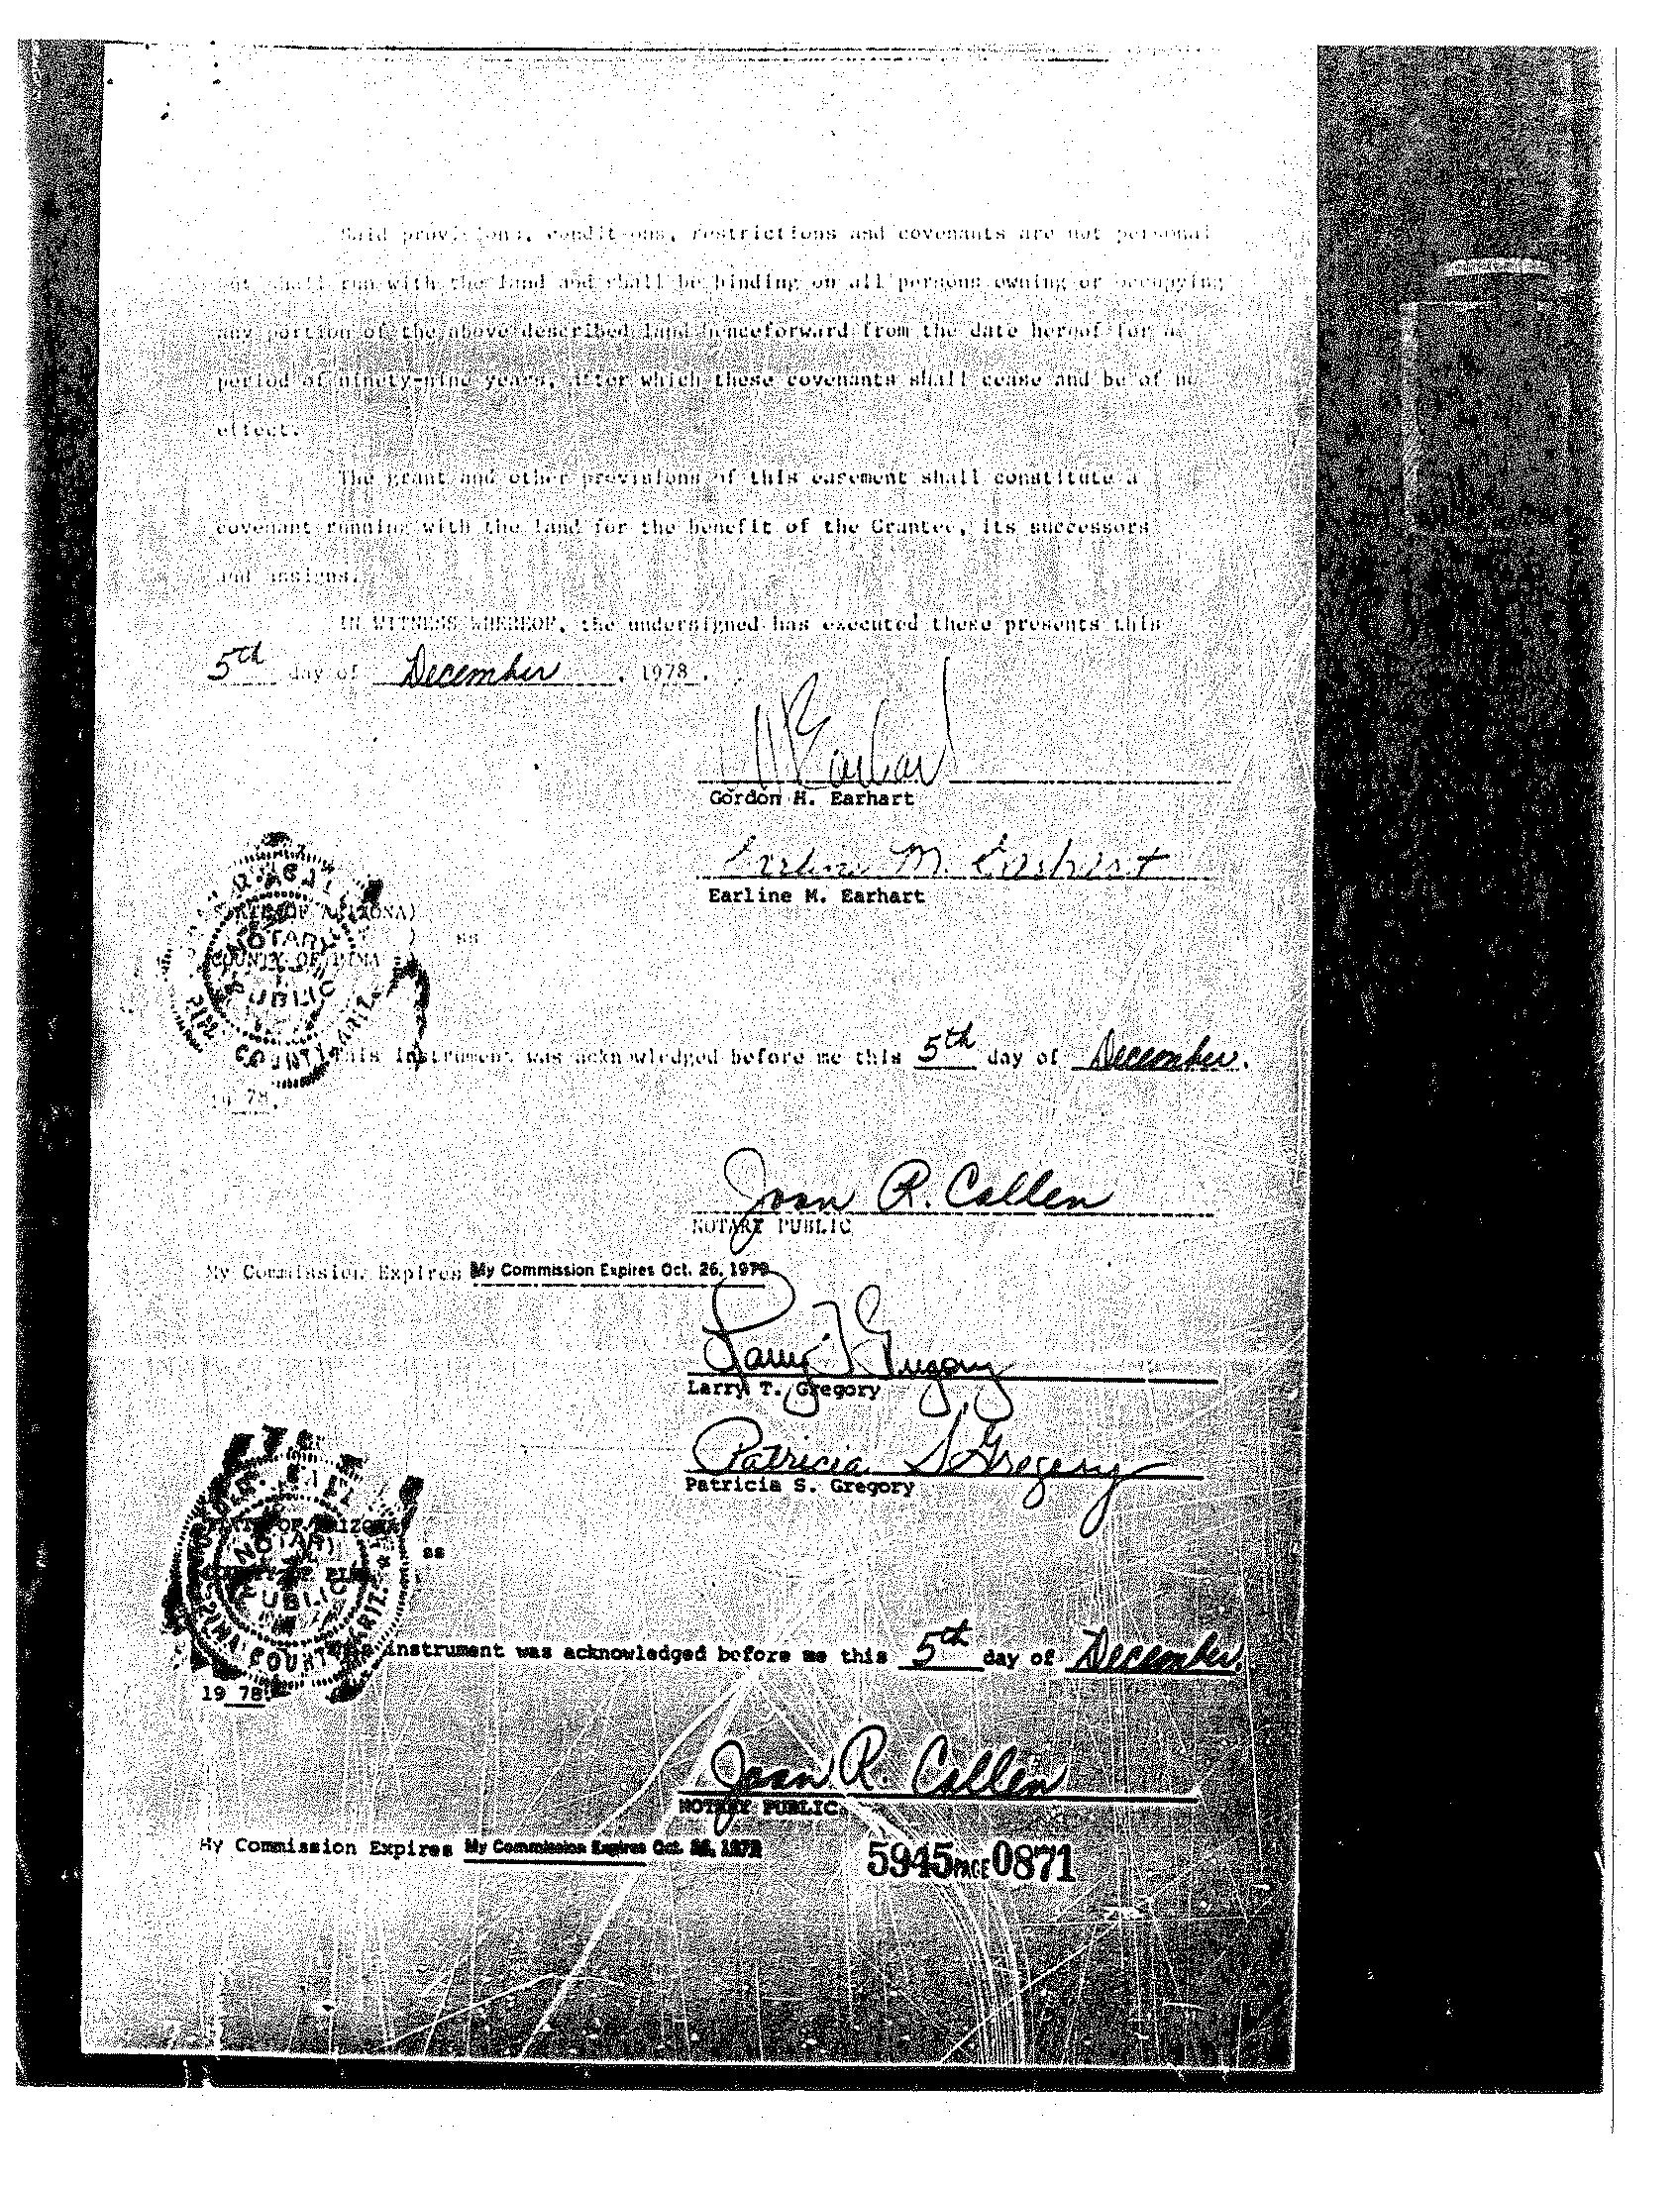 Said provisions, conditions, restrictions and covenants are not personal
but shall run with the land and shall be binding on all persons owning or occupying
any portion of the above described land henceforward from the date hereof for a
period of ninety-nine years, after which these covenants shall cease and be of no
effect.
The grant and other provisions of this easement shall constitute a
covenant running with the land for the benefit of the Grantee, its successors
and assigns.
IN WITNESS WHEREOF, the undersigned has executed these presents this
5th day of December, 1978.
Gordon H. Earhart
Earline M. Earhart
Earline M. Earhart
STATE OF ARIZONA)
) ss
COUNTY OF PIMA )
NOTARY
PUBLIC
This instrument was acknowledged before me this 5th day of December,
19 78.
Joan R. Callen
NOTARY PUBLIC
My Commission Expires My Commission Expires Oct. 26, 1979
Larry T. Gregory
Larry T. Gregory
Patricia S. Gregory
Patricia S. Gregory
STATE OF ARIZONA
ss
COUNTY OF PIMA
NOTARY
PUBLIC
This instrument was acknowledged before me this 5th day of December,
19 78.
Joan R. Callen
NOTARY PUBLIC
My Commission Expires My Commission Expires Oct. 26, 1979
5945 PAGE 0871